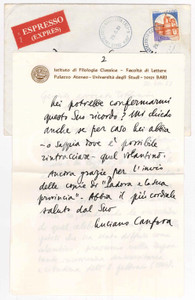 ESPRESSO
(EXPRÈS)
2
Istituto di Filologia Classica - Facoltà di Lettere
Palazzo Ateneo - Università degli Studi - 70121 BARI
Lei potrebbe confermarmi
questo Suo ricordo? Mi chiedo
anche se per caso Lei abbia
- o sappia dove è possibile
rintracciare - quel volantino.
Ancora grazie per l'invio
delle copie di "Padova e la sua
provincia". Abbia il più cordiale
saluto dal Suo
Luciano Canfora